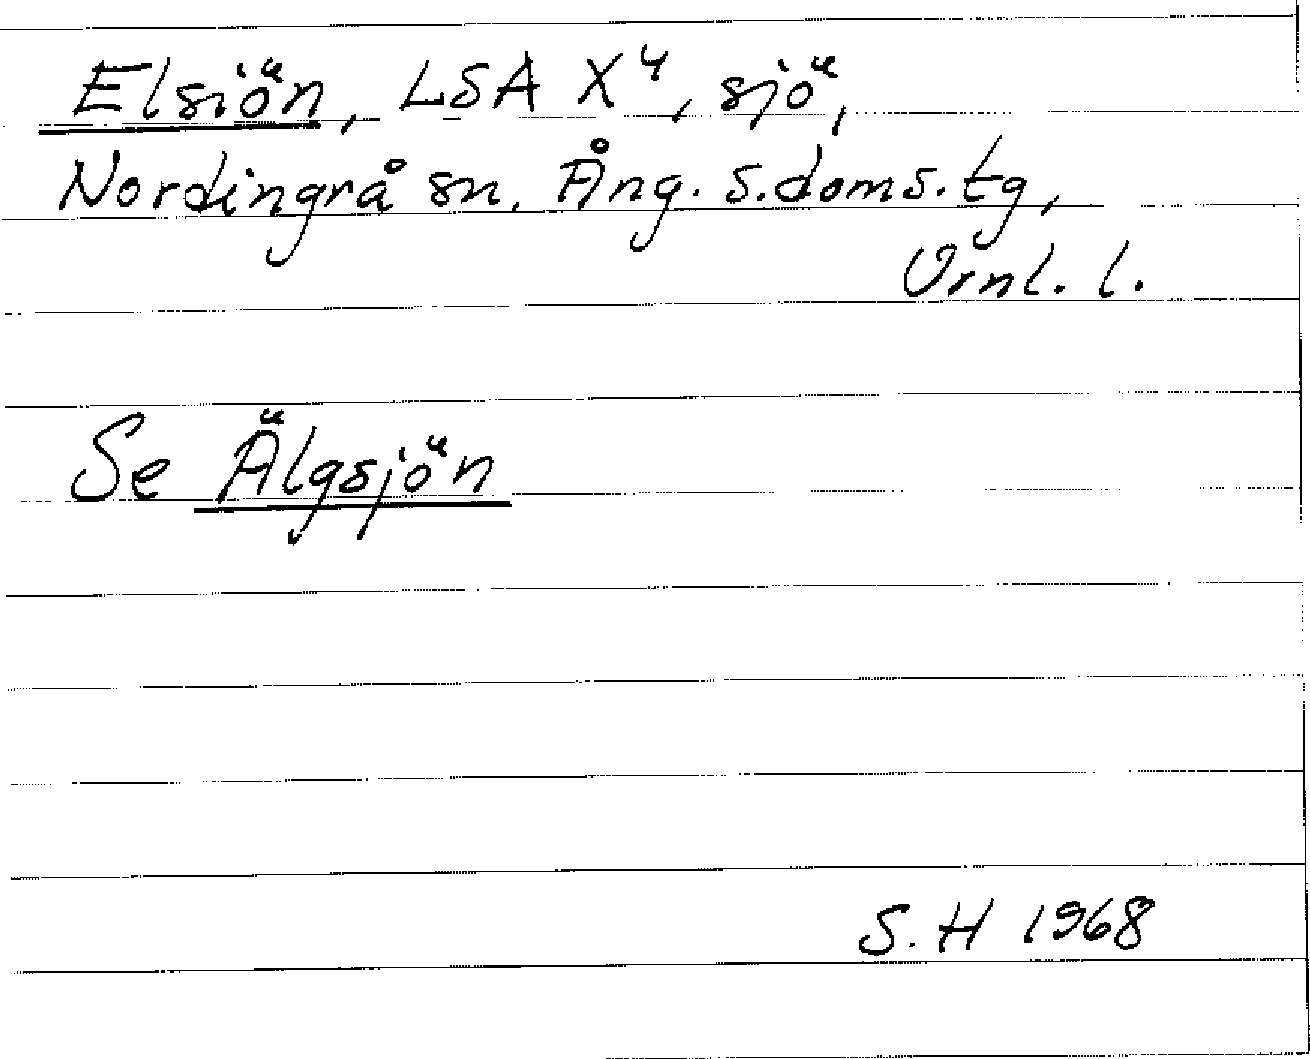 Elsiön, LSA X4, sjö,
Nordingrå sn. Ång. s.doms.tg,
Vrnl. l.
Se Älgsjön
S. H 1968